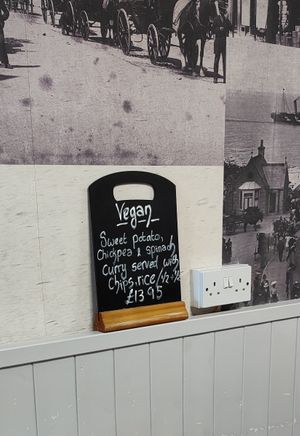 Vegan
Sweet potato,
Chickpea & spinach
curry served with
Chips, rice / ½ + ½
£13.95